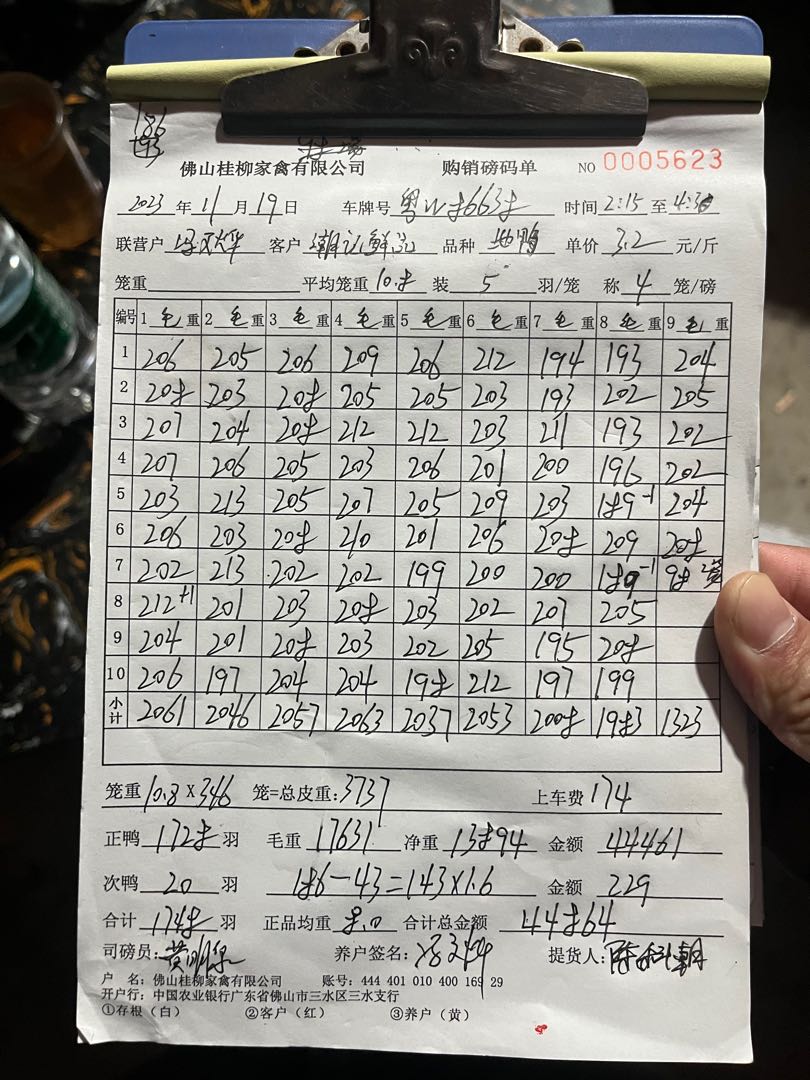 186
佛山桂柳家禽有限公司 购销磅码单 NO 0005623
2023 年 11 月 19 日 车牌号 粤W86638 时间 2:15 至 4:30
联营户 客户 品种 单价 3.2 元/斤
笼重 平均笼重 10.8 装 5 羽/笼 称 4 笼/磅
编号 1 毛 重 2 毛 重 3 毛 重 4 毛 重 5 毛 重 6 毛 重 7 毛 重 8 毛 重 9 毛 重
1 206 205 206 209 206 212 194 193 204
2 208 203 208 205 205 203 193 202 205
3 207 204 208 212 212 203 211 193 202
4 207 206 205 203 206 201 200 196 202
5 203 213 205 207 205 209 203 189-1 204
6 206 203 208 210 201 206 208 209 208
7 202 213 202 202 199 200 200 189-1 98 2笼
8 212+1 201 203 208 203 202 207 205
9 204 201 208 203 202 205 195 208
10 206 197 204 204 198 212 197 199
小计 2061 2046 2057 2063 2037 2053 2008 1983 1323
笼重 10.8×346 笼=总皮重: 3737 上车费 174
正鸭 1728 羽 毛重 17631 净重 13894 金额 44461
次鸭 20 羽 186-43=143×1.6 金额 229
合计 1748 羽 正品均重 8.0 合计总金额 44864
司磅员: 养户签名: 提货人:
户 名: 佛山桂柳家禽有限公司 账号: 444 401 010 400 169 29
开户行: 中国农业银行广东省佛山市三水区三水支行
①存根（白） ②客户（红） ③养户（黄）